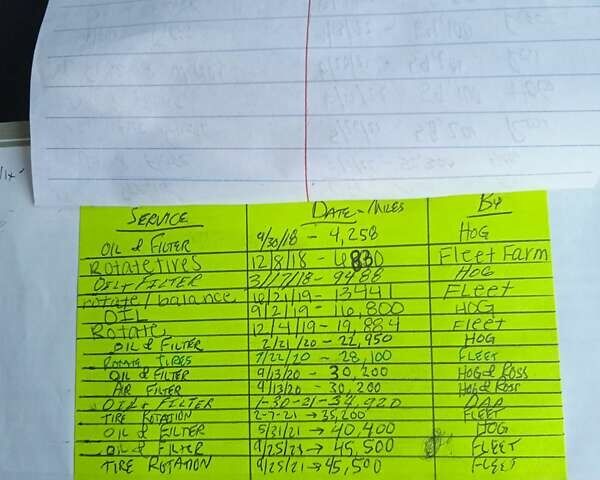 SERVICE DATE - MILES BY
OIL & FILTER 9/30/18 - 4,258 HOG
Rotate tires 12/8/18 - 6830 Fleet Farm
OIL + FILTER 3/17/18 - 9488 HOG
rotate/balance 6/21/19 - 13441 FLeet
OIL 9/2/19 - 16,800 HOG
Rotate 12/4/19 - 19,884 Fleet
OIL & FILTER 2/21/20 - 22,950 HOG
ROTATE TIRES 7/22/20 - 28,100 FLEET
OIL & FILTER 9/13/20 - 30,200 HOG & ROSS
AIR FILTER 9/13/20 - 30,200 HOG & ROSS
OIL & FILTER 1-30-21 - 34,920 DAD
TIRE ROTATION 2-7-21 → 35,200 FLEET
OIL & FILTER 5/31/21 → 40,400 HOG
OIL & FILTER 9/25/21 → 45,500 FLEET
TIRE ROTATION 9/25/21 → 45,500 FLEET